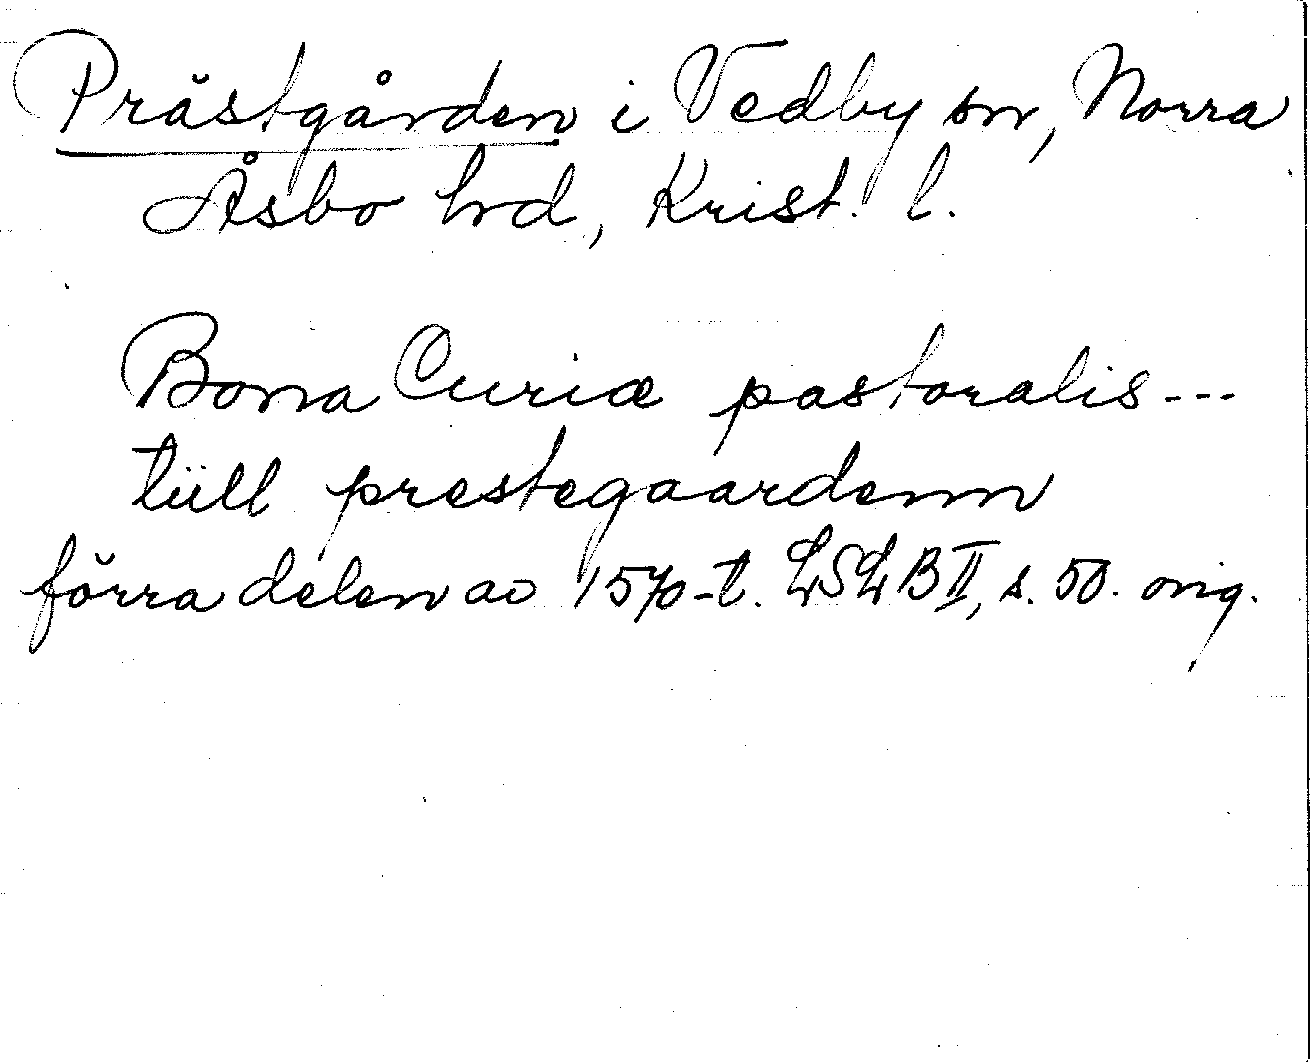 Prästgården i Vedby sn, Norra
Åsbo hrd, Krist. l.
Bona Curiæ pastoralis ---
tiill prestegaardenn
förra delen av 1570-t. LSLB II, s. 50. orig.